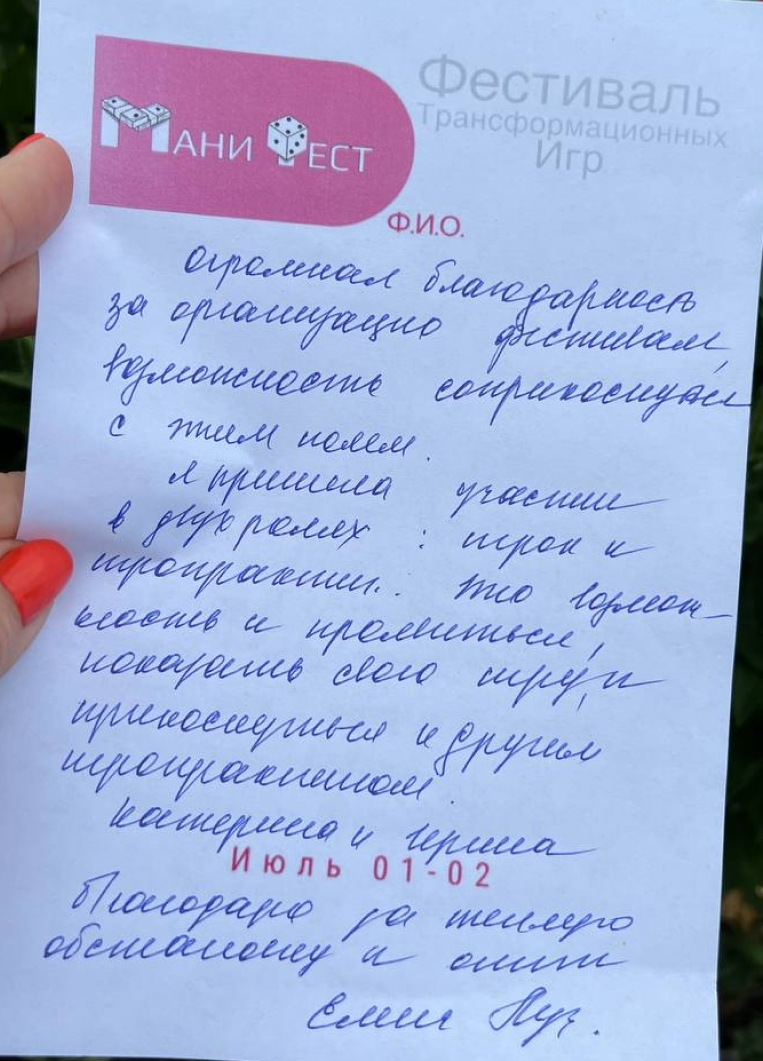 Мани Фест
Фестиваль
Трансформационных
Игр
Ф.И.О.
огромная благодарность
за организацию фестиваля,
возможность соприкоснуться
с этим полем.
Я приняла участие
в двух ролях: игрок и
игропрактик. Это возмож-
ность и проявиться,
показать свою игру, и
прикоснуться к другим
игропрактикам.
Катерина и Ирина
Июль 01-02
Благодарю за теплую
обстановку и
Елена